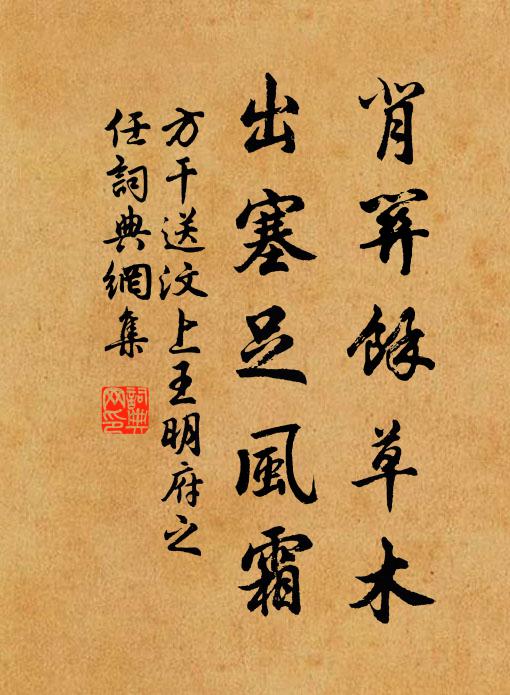 背關餘草木
出塞足風霜
方干送汶上王明府之
任詞典網集
詞典
网印